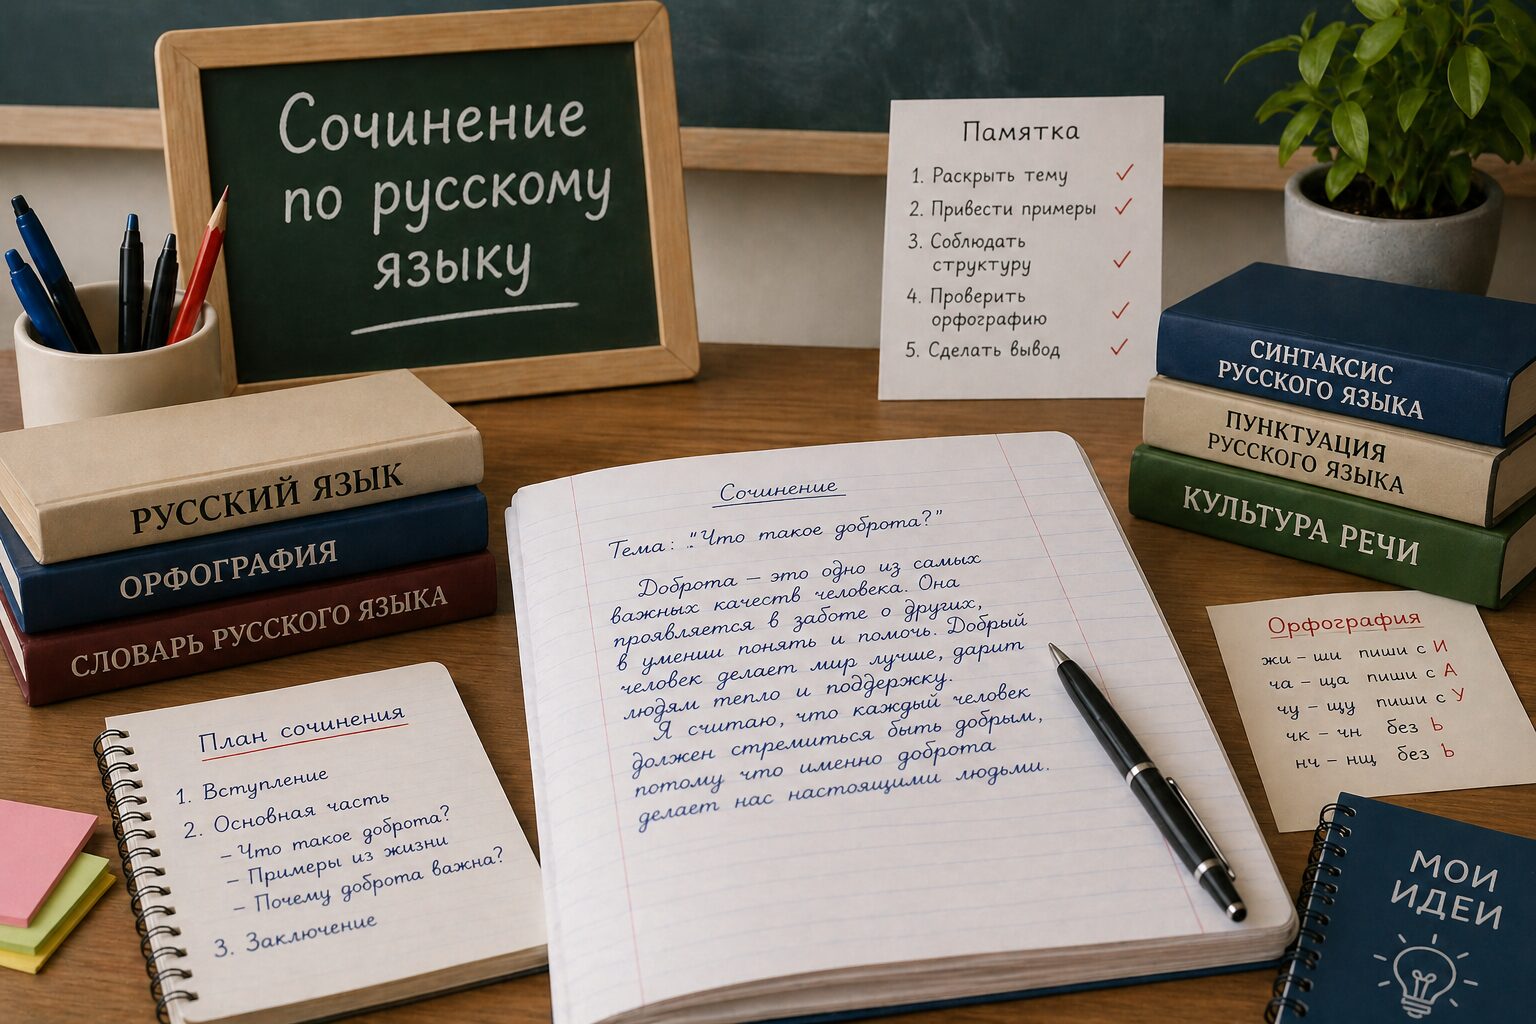 Сочинение
по русскому
языку
Памятка
1. Раскрыть тему ✓
2. Привести примеры ✓
3. Соблюдать
структуру ✓
4. Проверить
орфографию ✓
5. Сделать вывод ✓
РУССКИЙ ЯЗЫК
ОРФОГРАФИЯ
СЛОВАРЬ РУССКОГО ЯЗЫКА
СИНТАКСИС
РУССКОГО ЯЗЫКА
ПУНКТУАЦИЯ
РУССКОГО ЯЗЫКА
КУЛЬТУРА РЕЧИ
План сочинения
1. Вступление
2. Основная часть
– Что такое доброта?
– Примеры из жизни
– Почему доброта важна?
3. Заключение
Сочинение
Тема: "Что такое доброта?"
Доброта – это одно из самых
важных качеств человека. Она
проявляется в заботе о других,
в умении понять и помочь. Добрый
человек делает мир лучше, дарит
людям тепло и поддержку.
Я считаю, что каждый человек
должен стремиться быть добрым,
потому что именно доброта
делает нас настоящими людьми.
Орфография
жи – ши пиши с И
ча – ща пиши с А
чу – щу пиши с У
чк – чн без Ь
нч – нщ без Ь
МОИ
ИДЕИ